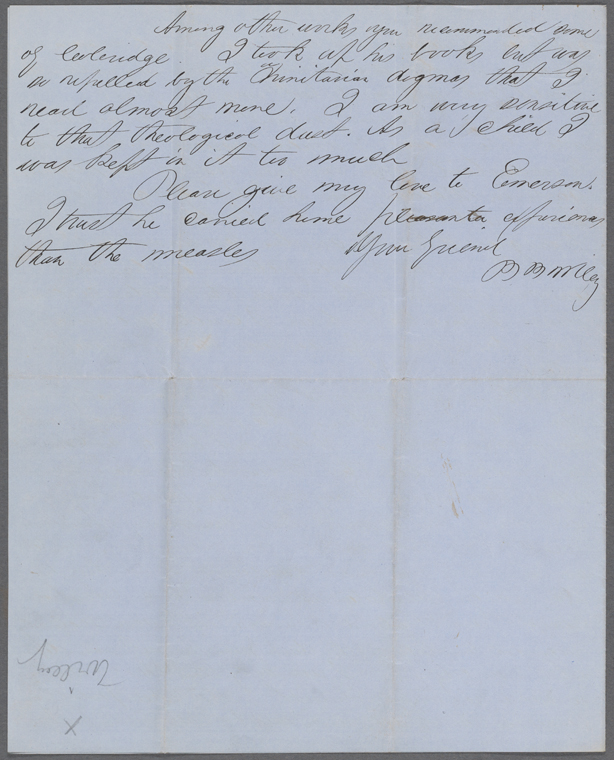 Among other works you recommended some
of Coleridge. I took up his books but was
so repelled by the Trinitarian dogmas that I
read almost none. I am very sensitive
to that theological dust. As a child I
was kept in it too much
Please give my love to Emerson.
I trust he carried home pleasanter experiences
than the measles Your friend
B B Wiley
Wiley
X